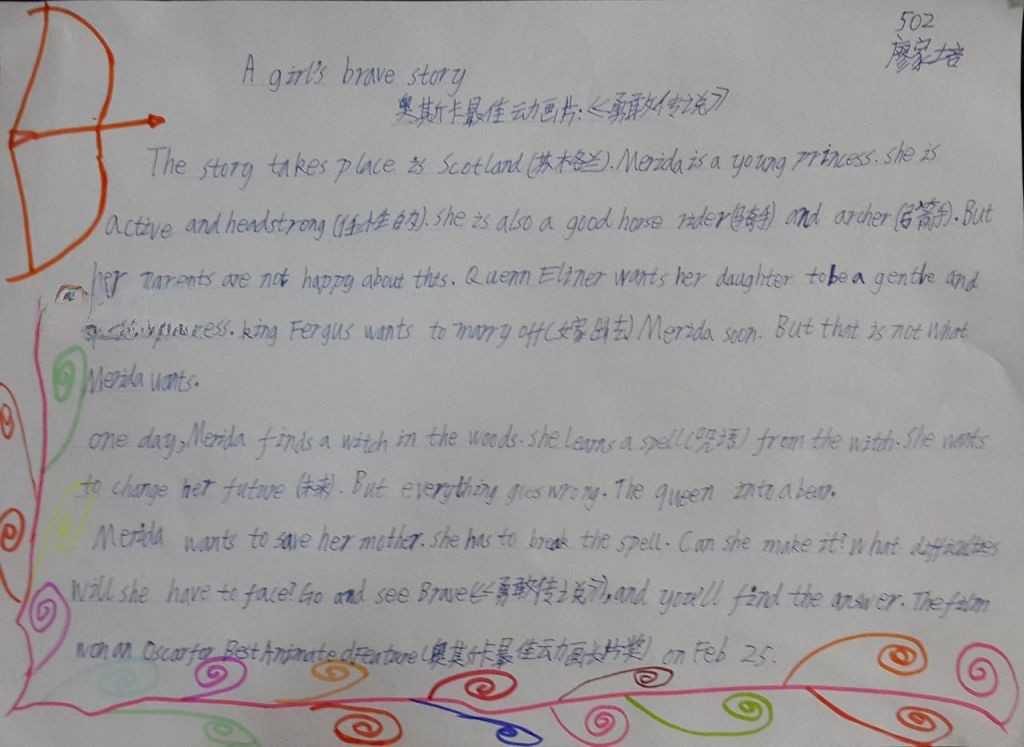 502
廖家培
A girl's brave story
奥斯卡最佳动画片:《勇敢传说》
The story takes place is Scotland(苏格兰). Merida is a young princess. she is
active and headstrong (任性的). she is also a good horse rider(骑手) and archer(弓箭手). But
her parents are not happy about this. Quenn Eliner wants her daughter to be a gentle and
princess. king Fergus wants to marry off(嫁出去) Merida soon. But that is not what
Merida wants.
one day, Merida finds a witch in the woods. she learns a spell(咒语) from the witch. She wants
to change her future (未来). But everything goes wrong. The queen into a bear.
Merida wants to save her mother. she has to break the spell. Can she make it? What difficulties
will she have to face? Go and see Brave(《勇敢传说》), and you'll find the answer. The film
won an Oscar for Best Animated Feature(奥斯卡最佳动画长片奖) on Feb 25.